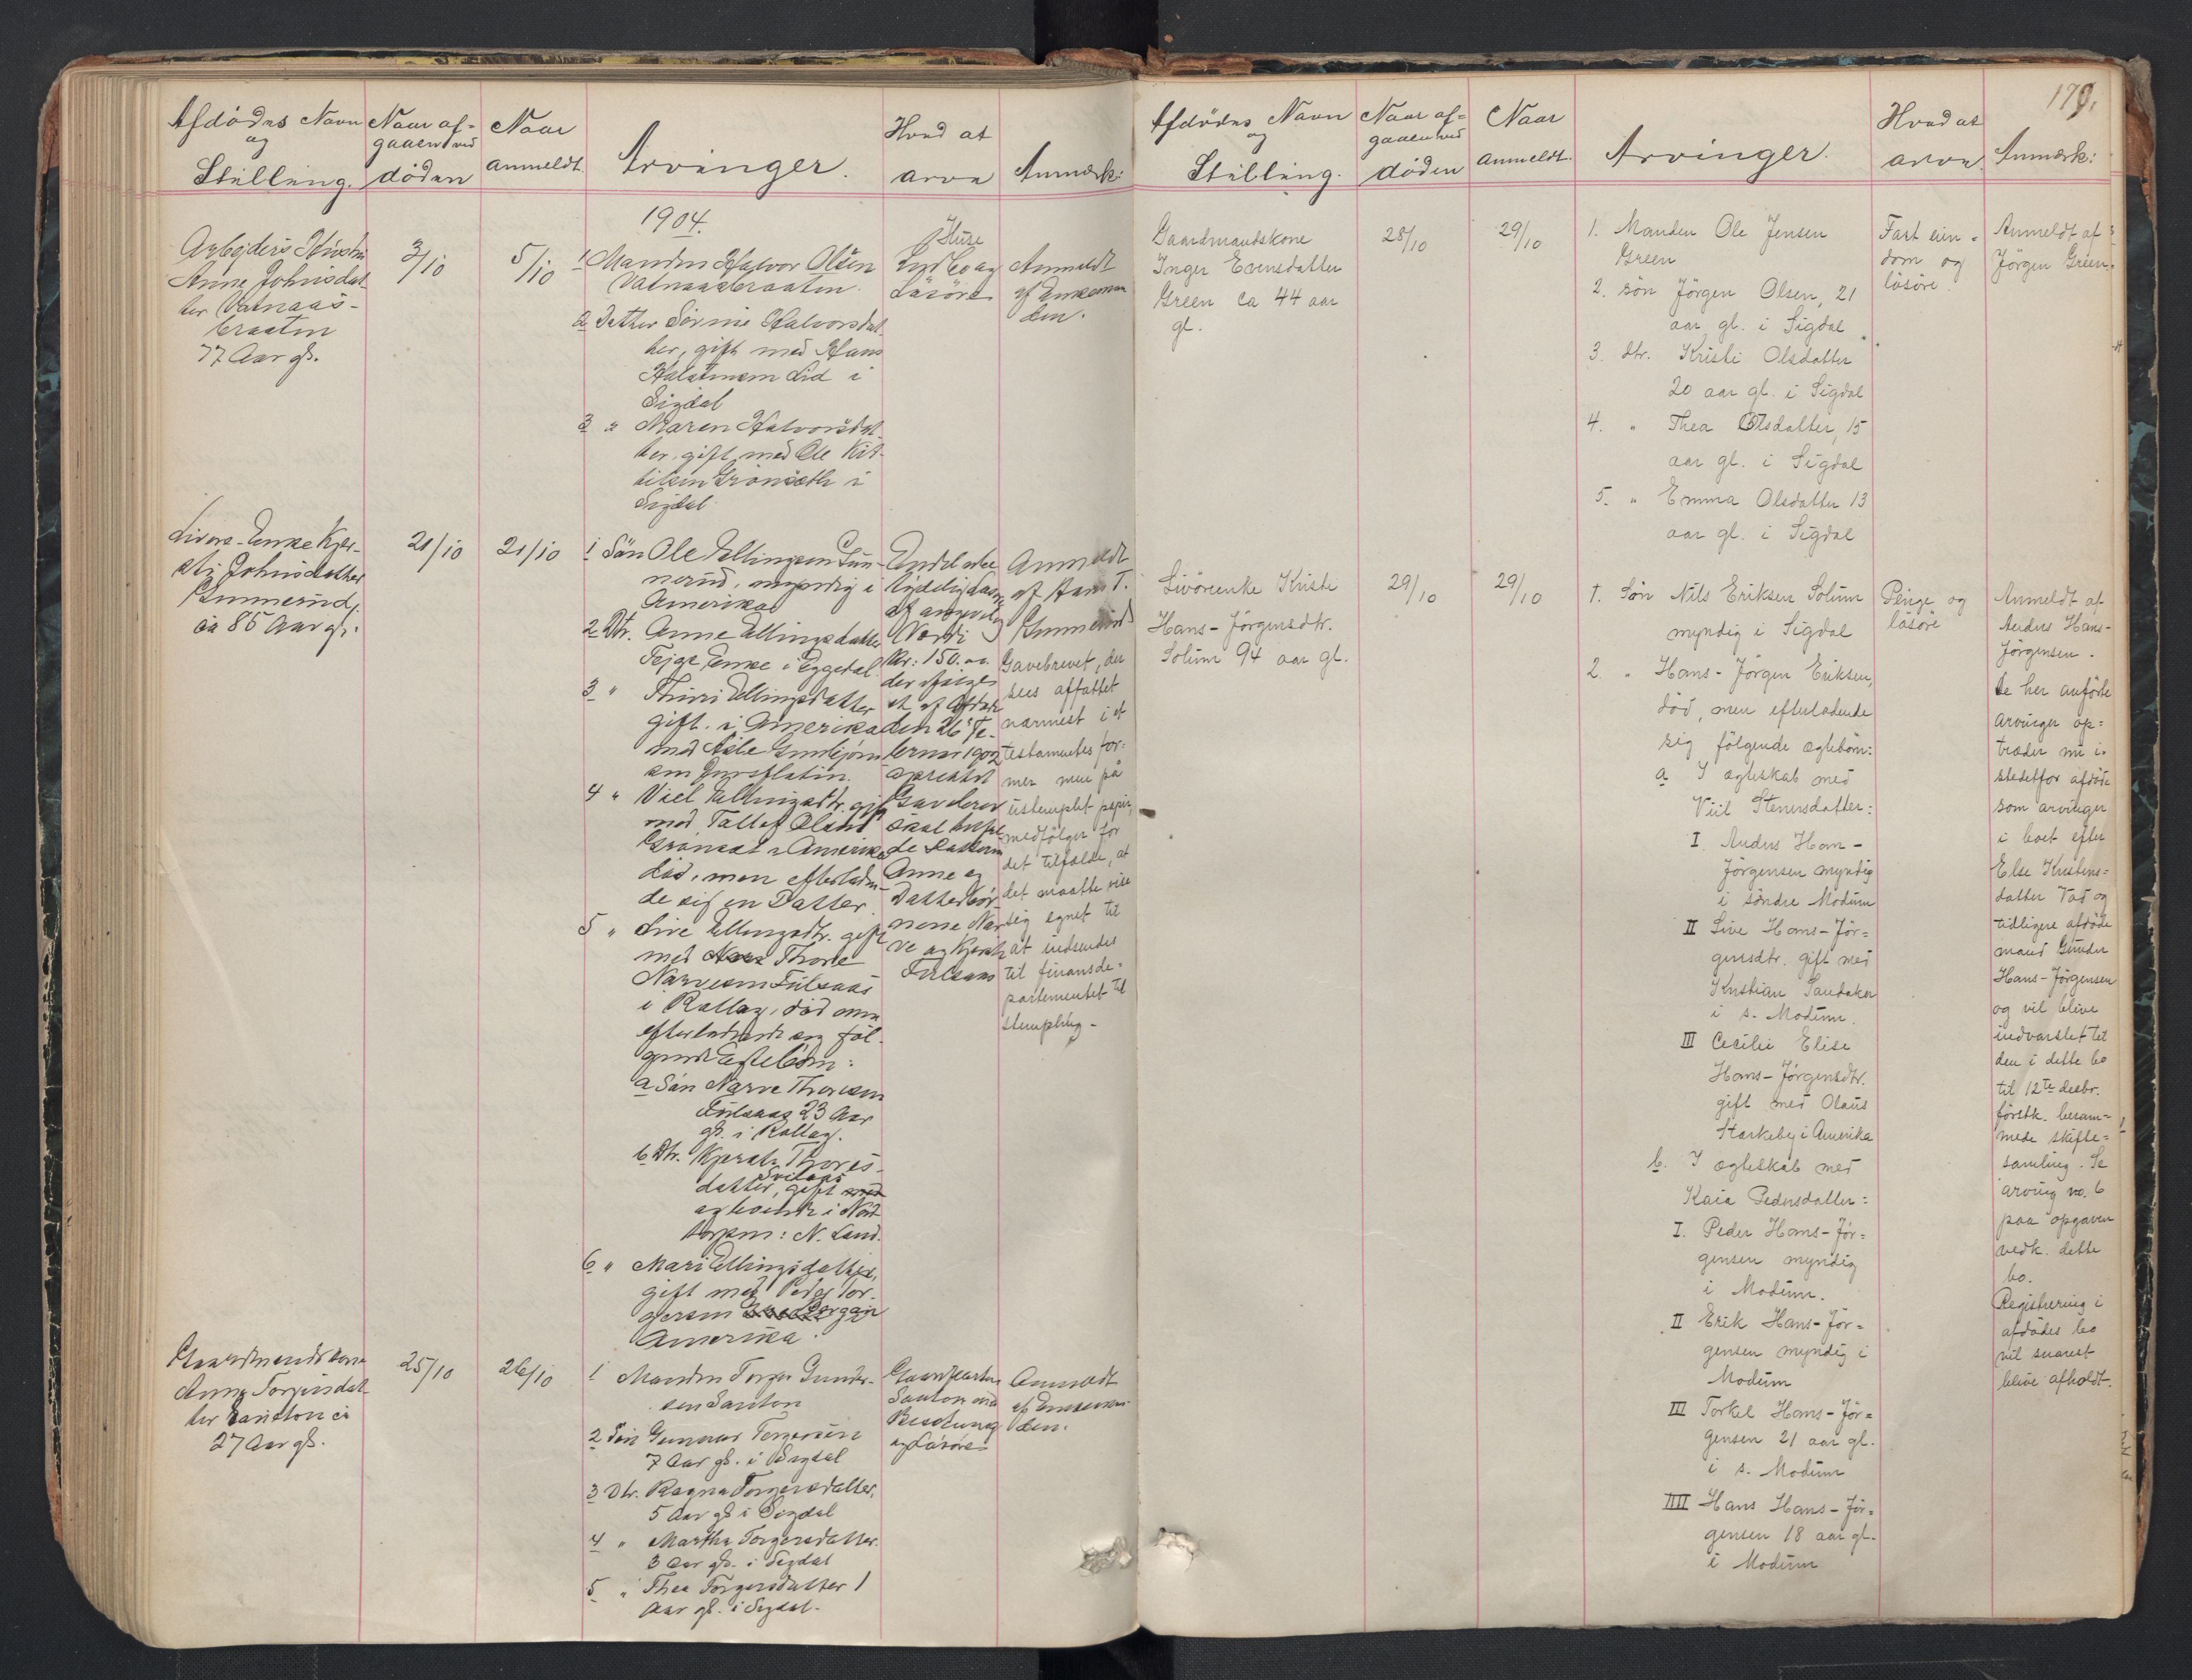 Afdødes Navn
og
Stilling.
Naar af-
gaaen ved
døden
Naar
anmeldt.
Arvinger.
Hvad at
arve
Anmærk:
1904.
Arbeiders Hustru
Anne Johnsdat-
ter Vatnaas-
braaten
77 Aar gl.
3/10
5/10
1 Manden Halvor Olsen
Vatnaasbraaten.
2 Datter Sørine Halvorsdat-
ter, gift med Hans
Lid i
Sigdal
3 " Maren Halvorsdat-
ter, gift med Ole Kit-
tilsen Grønseth i
Sigdal
Huse
og
Løsøre
Anmeldt
af Enkeman
den.
Livørs-Enke Kjer-
sti Johnsdatter
Gunnerud,
ca 85 Aar gl.
21/10
21/10
1 Søn Ole Ellingsen Gun-
nerud, myndig i
Amerika
2 Dtr. Anne Ellingsdatter
Teige Enke i Eggedal.
3 " Thuri Ellingsdatter
gift i Amerika
med Asle Gunbjørn-
sen
4 " Viel Ellingsdtr. gift
med Tallef Olsen
Grønset i Amerika
død, men efterladen-
de sig en Datter.
5 " Live Ellingsdtr. gift
med Thore
Narvesen Fulsaas
i Rollag, død men
efterladende sig føl-
gende Ægtebørn:
a Søn Narve Thoresen
Fulsaas 23 Aar
gl. i Rollag.
b Dtr. Kjersti Thores-
datter, gift
og boende i Nord
torpen: N. Land.
6 " Mari Ellingsdatter,
gift med Peder Tor-
gersen Borgan
Amerika.
af
Værdi
Kr: 150.00
der ifølge
den 26 Fe-
bruar 1902
oprettet
Gavebrev
skal tilfal-
de Datteren
Anne og
Datterbør-
nene Nar-
ve og Kjersti
Fulsaas
Anmeldt
af Hans T.
Gunnerud
Gavebrevet, der
sees affattet
nærmest i et
testamentes for-
mer men på
ustemplet papir,
medfølger for
det tilfælde, at
det maatte vise
sig egnet til
at indsendes
til finansde-
partementet til
stempling-
Gaardmandskone
Anne Torgersdat-
ter Santon ca
27 Aar gl.
25/10
26/10
1 Manden Torger Gunder-
sen Santon
2 Søn Gunnar Torgersen
7 Aar gl. i Sigdal
3 Dtr. Ragna Torgersdatter,
5 Aar gl i Sigdal
4 " Martha Torgersdatter
3 Aar gl. i Sigdal
5 " Thea Torgersdatter 1
Aar gl. i Sigdal.
Gaardparten
Santon med
Besetning
og Løsøre
Anmeldt
af Enkeman-
den.
179.
Afdødes Navn
og
Stilling.
Naar af-
gaaen ved
døden
Naar
anmeldt.
Arvinger.
Hvad at
arve.
Anmærk:
Gaardmandskone
Inger Evensdatter
Green ca 44 aar
gl.
28/10
29/10
1. Manden Ole Jensen
Green
2. søn Jörgen Olsen, 21
aar gl. i Sigdal
3. dtr. Kristi Olsdatter
20 aar gl. i Sigdal
4. " Thea Olsdatter, 15
aar gl. i Sigdal
5. " Emma Olsdatter 13
aar gl. i Sigdal
Fast eien-
dom og
løsøre.
Anmeldt af
Jörgen Green.
Livörenke Kristi
Hans-Jörgensdtr.
Solum 94 aar gl.
29/10
29/10
1. Søn Nils Eriksen Solum
myndig i Sigdal
2. " Hans-Jörgen Eriksen,
død, men efterladende
sig følgende ægtebörn:
a I ægteskab med
Viil Stenersdatter:
I. Anders Hans-
Jörgensen myndig
i søndre Modum
II Live Hans-Jör=
gensdtr. gift med
Kristian Sandaker
i s. Modum.
III Cecilie Elise
Hans-Jörgensdtr.
gift med Olaus
Starkeby i Amerika
b. I ægteskab med
Kaia Pedersdatter:
I. Peder Hans-Jör=
gensen myndig
i Modum.
II Erik Hans-Jör=
gensen myndig i
Modum
III Torkel Hans-Jör=
gensen 21 aar gl.
i s. Modum
IIII Hans Hans-Jör=
gensen 18 aar gl.
i Modum
Penge og
løsøre
Anmeldt af
Anders Hans-
Jörgensen.
De her anførte
arvinger op=
træder nu i
stedetfor afdøde
som arvinger
i boet efter
Else Kristens=
datter Vad og
tidligere afdøde
mand Gunder
Hans-Jörgensen
og vil blive
indvarslet til
den i dette bo
til 12te decbr.
førstk. beram-
mede skifte=
samling. Se
arving no. 6
paa opgaven
vedk. dette
bo.
Registrering i
afdødes bo
vil snarest
blive afholdt.